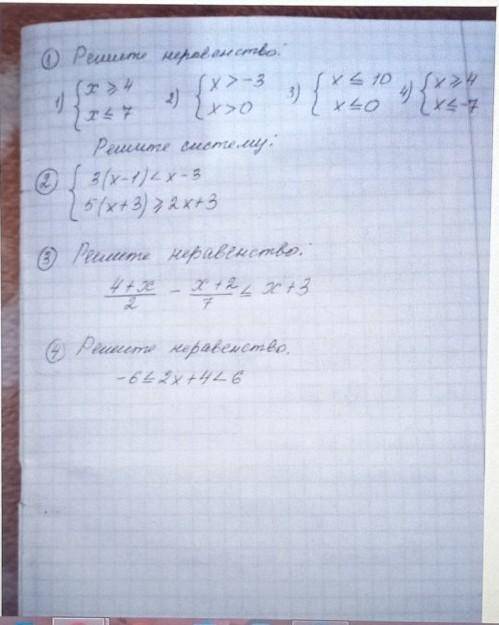 ① Решите неравенство:
1) { x ≥ 4 2) { x > -3 3) { x ≤ 10 4) { x ≥ 4
x ≤ 7 x > 0 x ≤ 0 x ≤ -7
Решите систему:
② { 3(x-1) < x-3
5(x+3) ≥ 2x+3
③ Решите неравенство:
4+x/2 - x+2/7 ≤ x+3
④ Решите неравенство.
-6 ≤ 2x+4 < 6